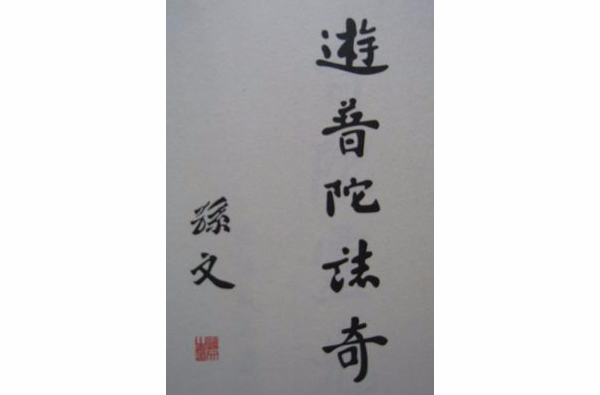 遊普陀誌奇
孫文